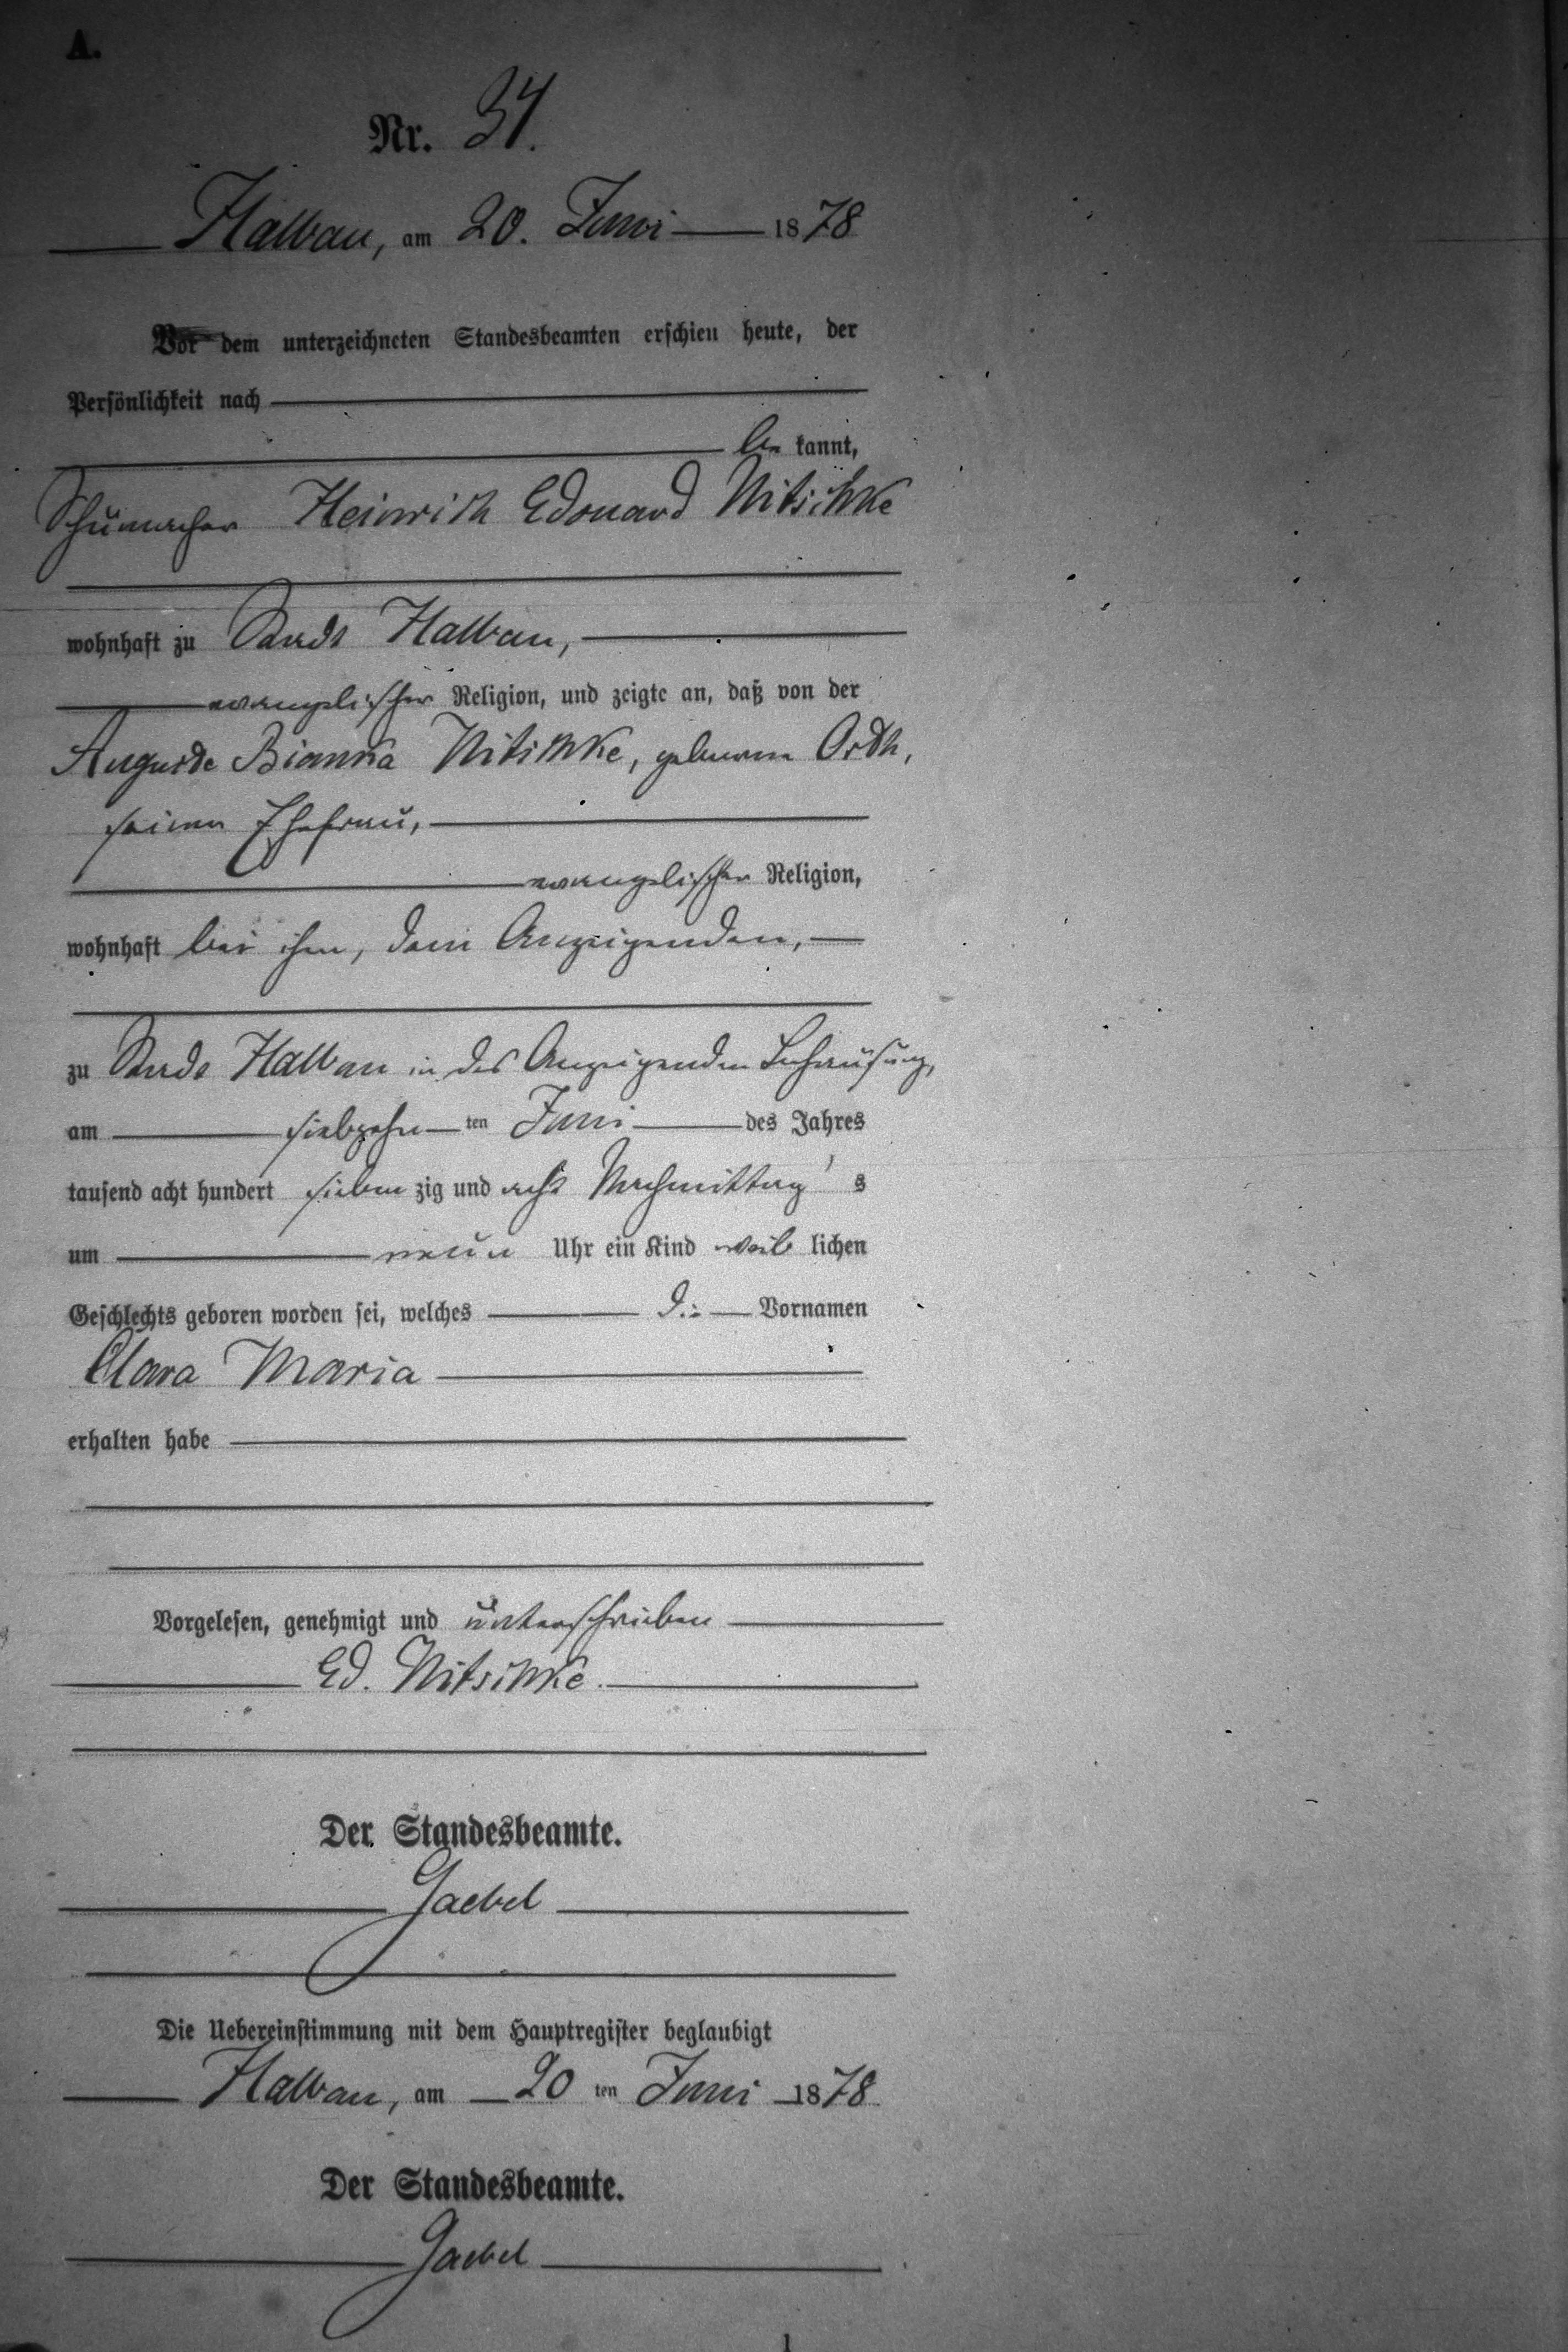 A.
Nr. 34.
Halbau, am 20. Juni 1878
Vor dem unterzeichneten Standesbeamten erschien heute, der
Persönlichkeit nach
be kannt,
Schumacher Heinrich Edouard Nitschke
wohnhaft zu Stadt Halbau,
evangelischer Religion, und zeigte an, daß von der
Auguste Bianka Nitschke, geborene Orth,
seiner Ehefrau,
evangelischer Religion,
wohnhaft bei ihm, dem Anzeigenden,
zu Stadt Halbau in des Anzeigenden Behausung,
am siebzehn ten Juni des Jahres
tausend acht hundert sieben zig und acht Nachmittag s
um neun Uhr ein Kind weib lichen
Geschlechts geboren worden sei, welches d.: Vornamen
Clara Maria
erhalten habe
Vorgelesen, genehmigt und unterschrieben
Ed. Nitschke.
Der Standesbeamte.
Gaebel
Die Uebereinstimmung mit dem Hauptregister beglaubigt
Halbau, am 20 ten Juni 1878.
Der Standesbeamte.
Gaebel
1